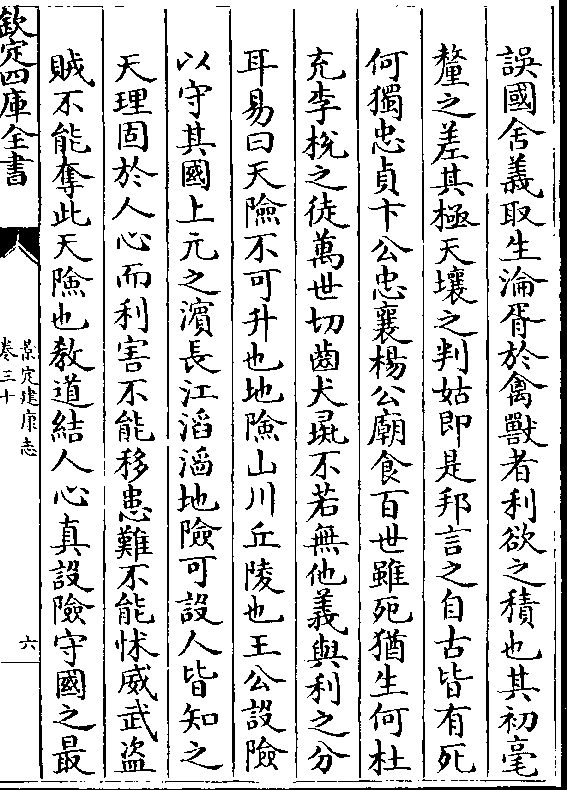 誤國舍義取生淪胥於禽獸者利欲之積也其初毫
釐之差其極天壤之判姑即是邦言之自古皆有死
何獨忠貞卞公忠襄楊公廟食百世雖死猶生何杜
充李梲之徒萬世切齒犬彘不若無他義與利之分
耳易曰天險不可升也地險山川丘陵也王公設險
以守其國上元之濱長江滔滔地險可設人皆知之
天理固於人心而利害不能移患難不能怵威武盜
賊不能奪此天險也教道結人心真設險守國之最
欽定四庫全書
景定建康志
卷三十
六